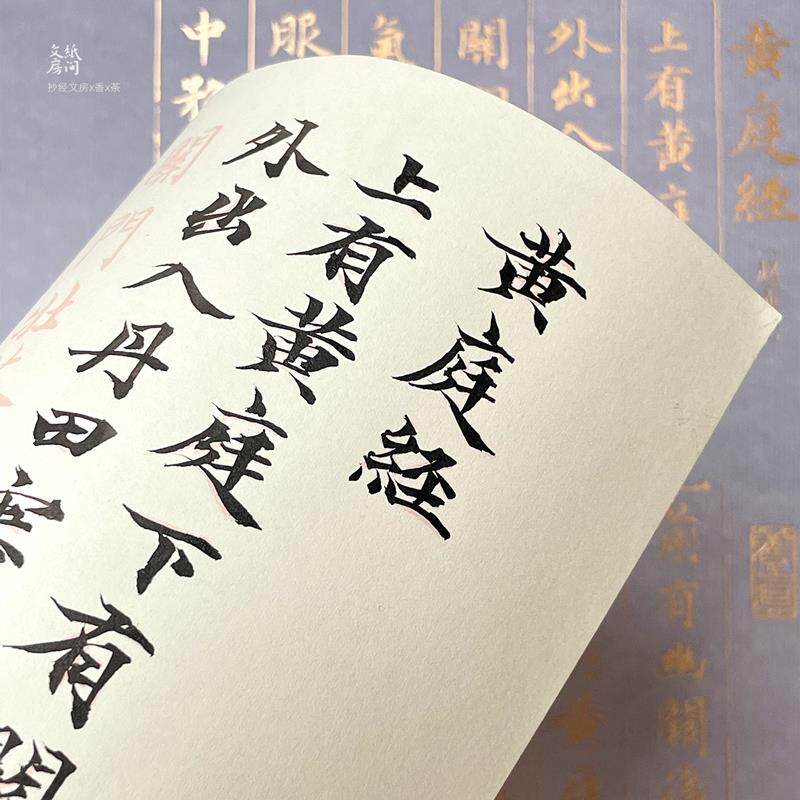 文房
纸间
抄经文房x香x茶
黄庭经
上有黄庭下有關
外出入丹田審
關門牡
黄庭经
上有黄庭
外出入
關
氣
服
中
前有幽關